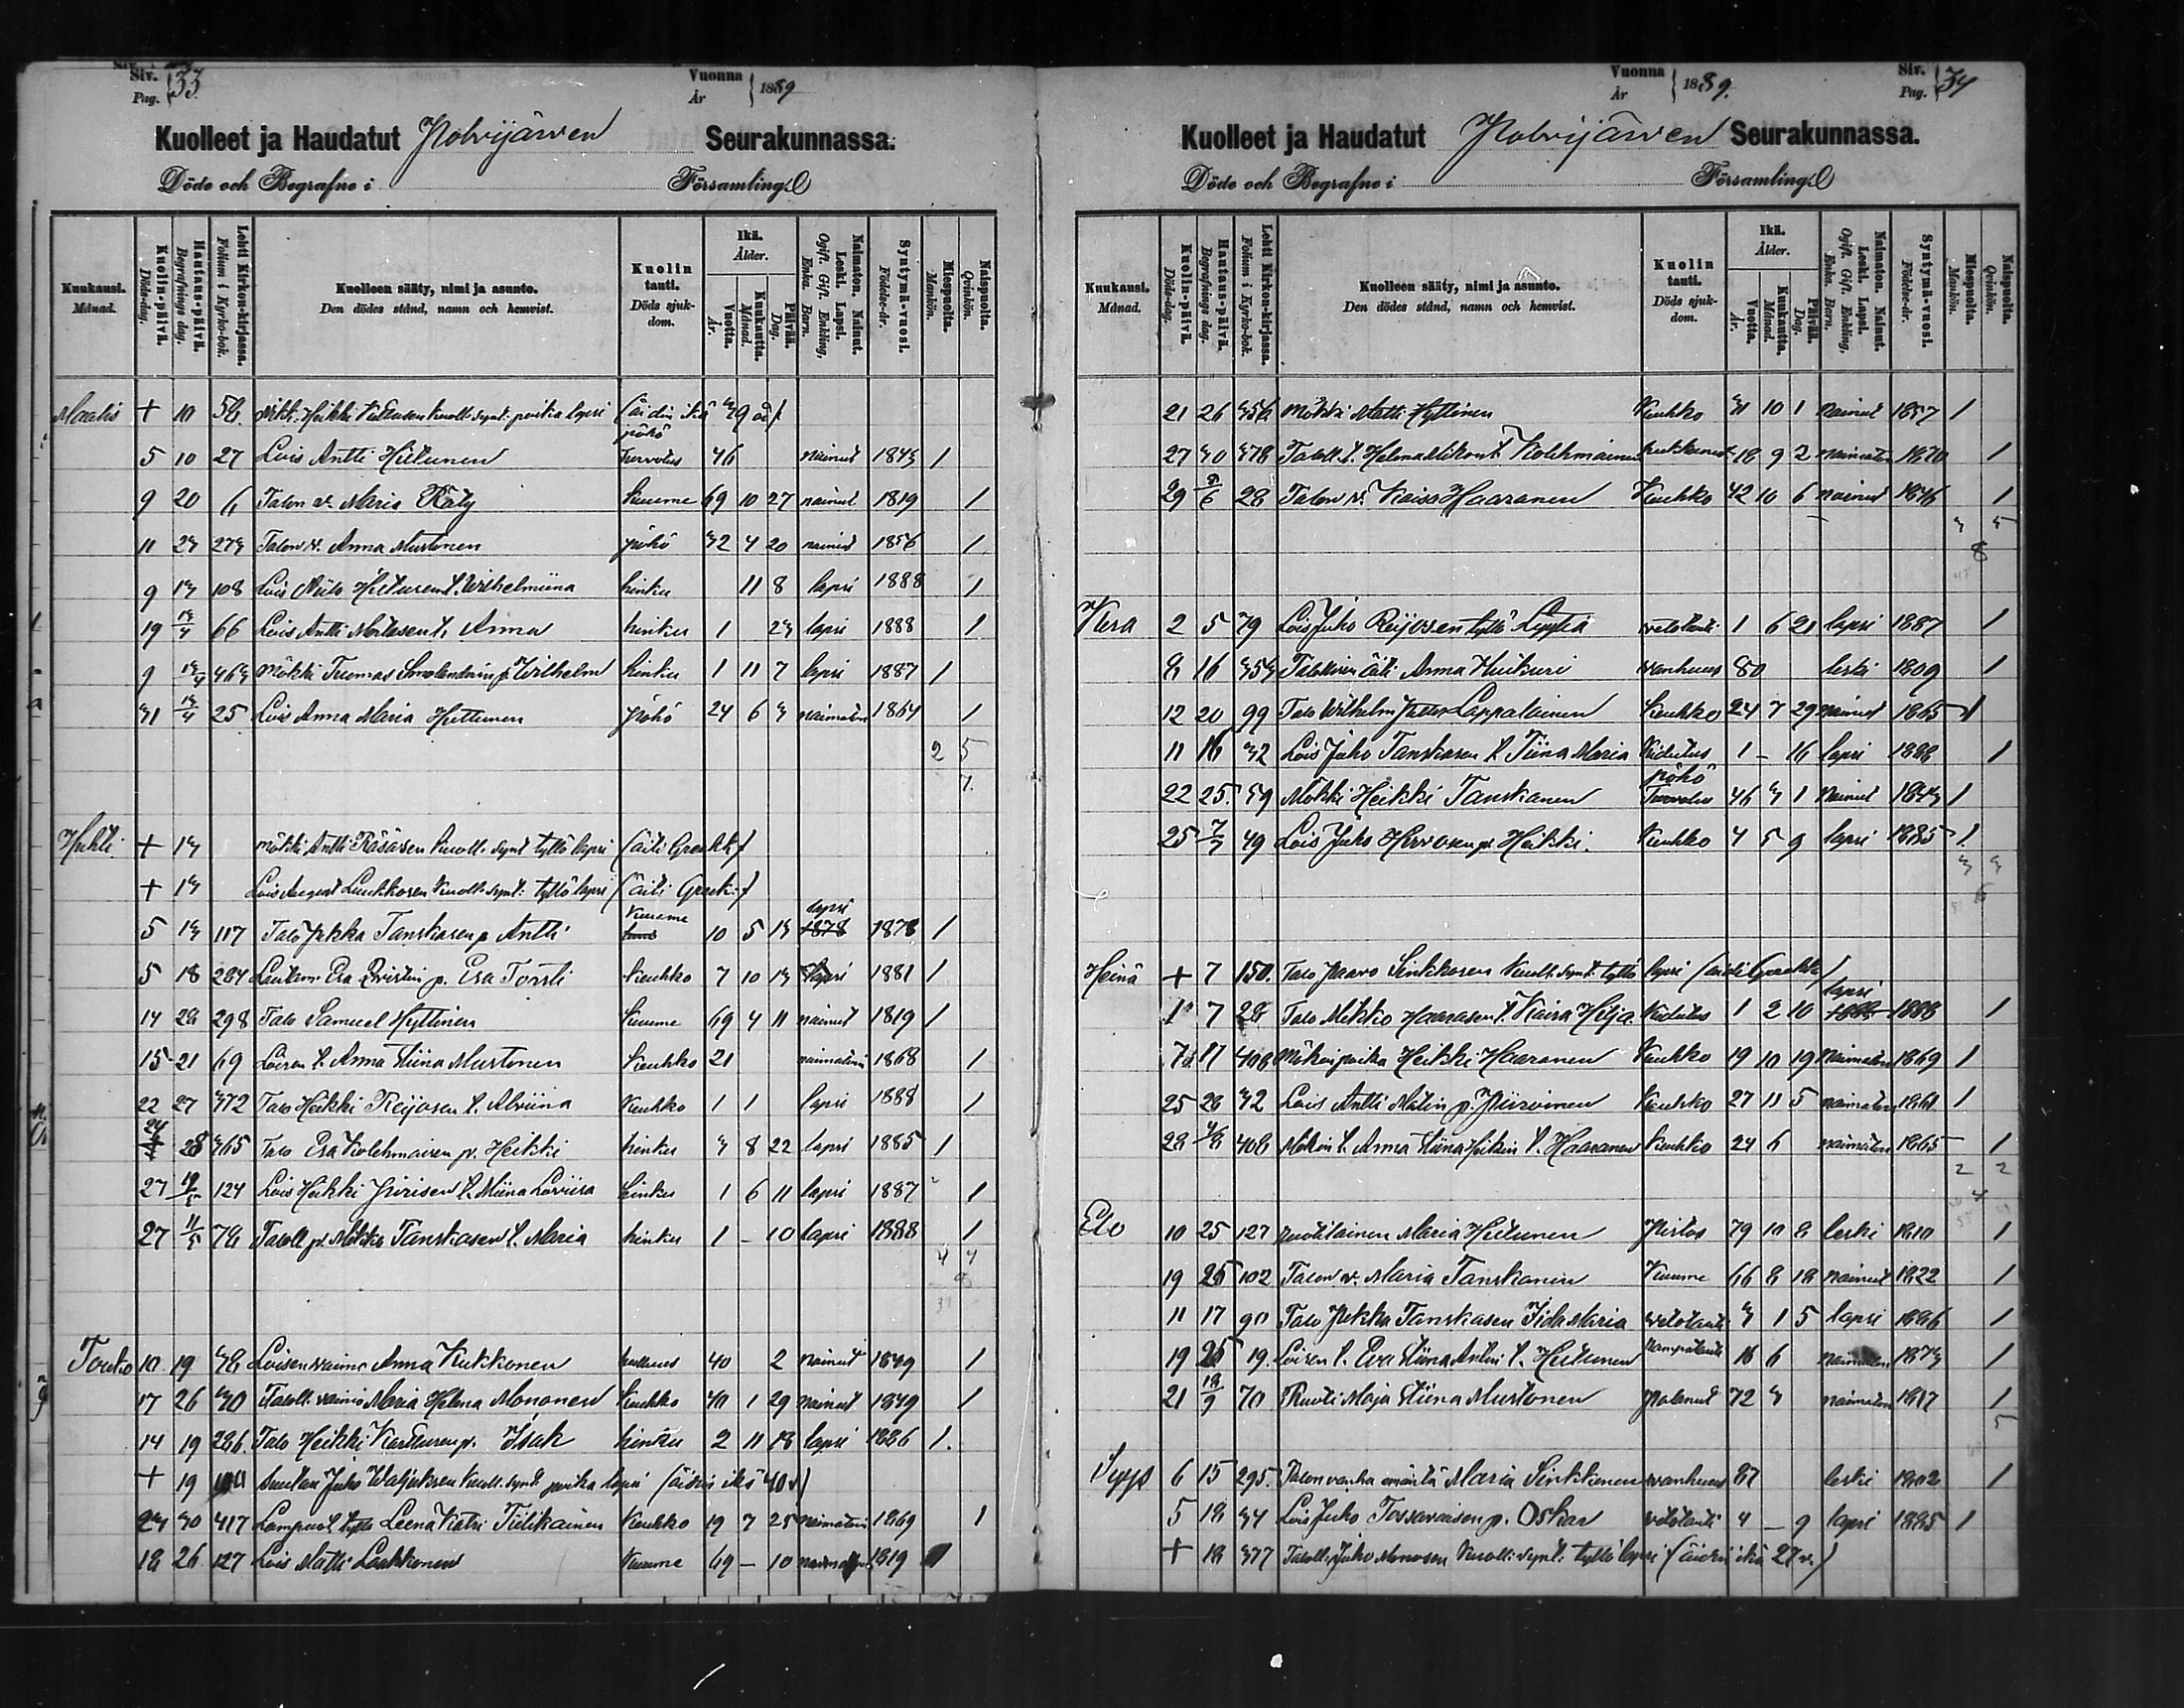 Siv. Pag. 33
Vuonna År 1889
Kuolleet ja Haudatut Polvijärven Seurakunnassa.
Döde och Begrafne i Församling.
Kuukausi. Månad.
Kuolin-päivä. Döds-dag.
Hautaus-päivä. Begrafnings dag.
Lehti Kirkon-kirjassa. Folium i Kyrko-bok.
Kuolleen sääty, nimi ja asunto. Den dödes stånd, namn och hemvist.
Kuolin tauti. Döds sjukdom.
Ikä. Ålder.
Vuotta. År.
Kuukautta. Månad.
Päivää. Dag.
Naimaton. Nainut. Leski. Lapsi. Ogift. Gift. Enkling, Enka. Barn.
Syntymä-vuosi. Födelse-år.
Miespuolta. Mankön.
Naispuolta. Qvinkön.
Maalis + 10 58 Heikki kuoll. synt. poika lapsi (äidin ikä 39
5 10 27 Lois Antti Hiltunen pöhö turvotus 46 nainut 1843 1
9 20 6 Talon v. Maria Räty kuume 69 10 27 nainut 1819 1
11 23 273 Talon v. Anna Mustonen pöhö 32 4 20 nainut 1856 1
9 13 108 Lois Niilo Hiltusen t. Wilhelmiina hinku 11 8 lapsi 1888 1
19 13/4 66 Lois Antti t. Anna hinku 1 23 lapsi 1888 1
9 463 Mökki Tuomas p. Wilhelm hinku 1 11 7 lapsi 1887 1
31 13/4 25 Lois Anna Maria Huttunen pöhö 24 6 3 naimaton 1864 1
2 5
7.
Huhti. + 13 mökki Antti Räsäsen kuoll. synt tyttö lapsi (äiti
+ 13 Lois August Luukkosen kuoll. synt. tyttö lapsi (äiti
5 13 117 Talo Pekka Tanskasen p. Antti kuume 10 5 13 lapsi 1878 1878 1
5 18 284 Esa p. Esa Torsti keuhko 7 10 13 lapsi 1881 1
14 28 298 Talo Samuel Hyttinen kuume 69 4 11 nainut 1819 1
15 21 69 Loisen t. Anna Tiina Mustonen keuhko 21 naimaton 1868 1
22 27 372 Talo Heikki Reijosen t. Alviina keuhko 1 1 lapsi 1888 1
24 28 365 Talo Esa Kolehmaisen p. Heikki hinku 3 8 22 lapsi 1885 1
27 12/5 124 Lois Heikki t. Miina Loviisa hinku 1 6 11 lapsi 1887 1
27 11/5 78 Taloll. p. Mikko Tanskasen t. Maria hinku 1 - 10 lapsi 1888 1
4 4
8
Touko 10. 19 38 Loisen vaimo Anna Kukkonen 40 2 nainut 1849 1
17 26 30 Taloll. vaimo Maria Helena Mononen keuhko 40 1 29 nainut 1849 1
14 19 286. Talo Heikki Karttusen p. Isak hinku 2 11 18 lapsi 1886 1.
+ 19 Juho kuoll. synt. poika lapsi (äidin ikä 40 v)
23 30 417 tyttö Leena Katri Tiilikainen keuhko 19 7 25 naimaton 1869 1
18 26 127 Lois Matti Laukkanen kuume 69 - 10 1819 1
Siv. Pag. 34
Vuonna År 1889.
Kuolleet ja Haudatut Polvijärven Seurakunnassa.
Döde och Begrafne i Församling.
Kuukausi. Månad.
Kuolin-päivä. Döds-dag.
Hautaus-päivä. Begrafnings dag.
Lehti Kirkon-kirjassa. Folium i Kyrko-bok.
Kuolleen sääty, nimi ja asunto. Den dödes stånd, namn och hemvist.
Kuolin tauti. Döds sjukdom.
Ikä. Ålder.
Vuotta. År.
Kuukautta. Månad.
Päivää. Dag.
Naimaton. Nainut. Leski. Lapsi. Ogift. Gift. Enkling, Enka. Barn.
Syntymä-vuosi. Födelse-år.
Miespuolta. Mankön.
Naispuolta. Qvinkön.
21 26 356 Mökki Matti Hyttinen Keuhko 31 10 1 nainut 1857 1
27 30 378 Taloll. t. Helena Kolehmainen 18 9 2 naimaton 1870 1
29 28 Talon v. Kaisa Haaranen Keuhko 42 10 6 nainut 1846 1
3 5
8
Kesä 2 5 79 Lois Juho Reijosen tyttö Lyytia vetotauti 1 6 21 lapsi 1887 1
8 16 353 äiti Anna Huikuri vanhuus 80 leski 1809 1
12 20 99 Talo Wilhelm Lappalainen Keuhko 24 7 29 nainut 1865 1
11 16 32 Lois Juho Tanskasen t. Tiina Maria kidutus 1 - 16 lapsi 1888 1
22 25. 59 Mökki Heikki Tanskanen pöhö Turvotus 46 3 1 nainut 1843 1
25 7/7 49 Lois Juho Hirvosen p. Heikki. Keuhko 4 5 9 lapsi 1885 1.
3 3
6
Heinä + 7 150. Talo Paavo Sinkkosen kuoll. synt. tyttö lapsi (äiti
1 7 28 Talo Mikko Haarasen t. Kaisa Hilja kidutus 1 2 10 lapsi 1888 1888 1
7 11 408 Mökin poika Heikki Haaranen Keuhko 19 10 19 naimaton 1869 1
25 28 32 Lois Antti Matin p. Piiroinen Keuhko 27 11 5 naimaton 1861 1
28 4/8 408 Mökin t. Anna Tiina Heikin t. Haaranen Keuhko 24 6 naimaton 1865 1
2 2
4
Elo 10 25 127 ruotilainen Maria Hiltunen Pistos 79 10 8 leski 1810 1
19 25 102 Talon v. Maria Tanskanen Kuume 66 8 18 nainut 1822 1
11 17 90 Talo Pekka Tanskasen Iida Maria vetotauti 3 1 5 lapsi 1886 1
19 25 19. Loisen t. Eva Tiina Antin t. Hiltunen 16 6 naimaton 1873 1
21 18/9 70 Ruoti Maja Tiina Mustonen palanut 72 3 naimaton 1817 1
5
Syys 6 15 295. Talon vanha emäntä Maria Sinkkonen vanhuus 87 leski 1802 1
5 18 34 Lois Juho Tossavaisen p. Oskar vetotauti 4 - 9 lapsi 1885 1
+ 18 377 Taloll. Juho Monosen kuoll. synt. tyttö lapsi (äidin ikä 27 v.)